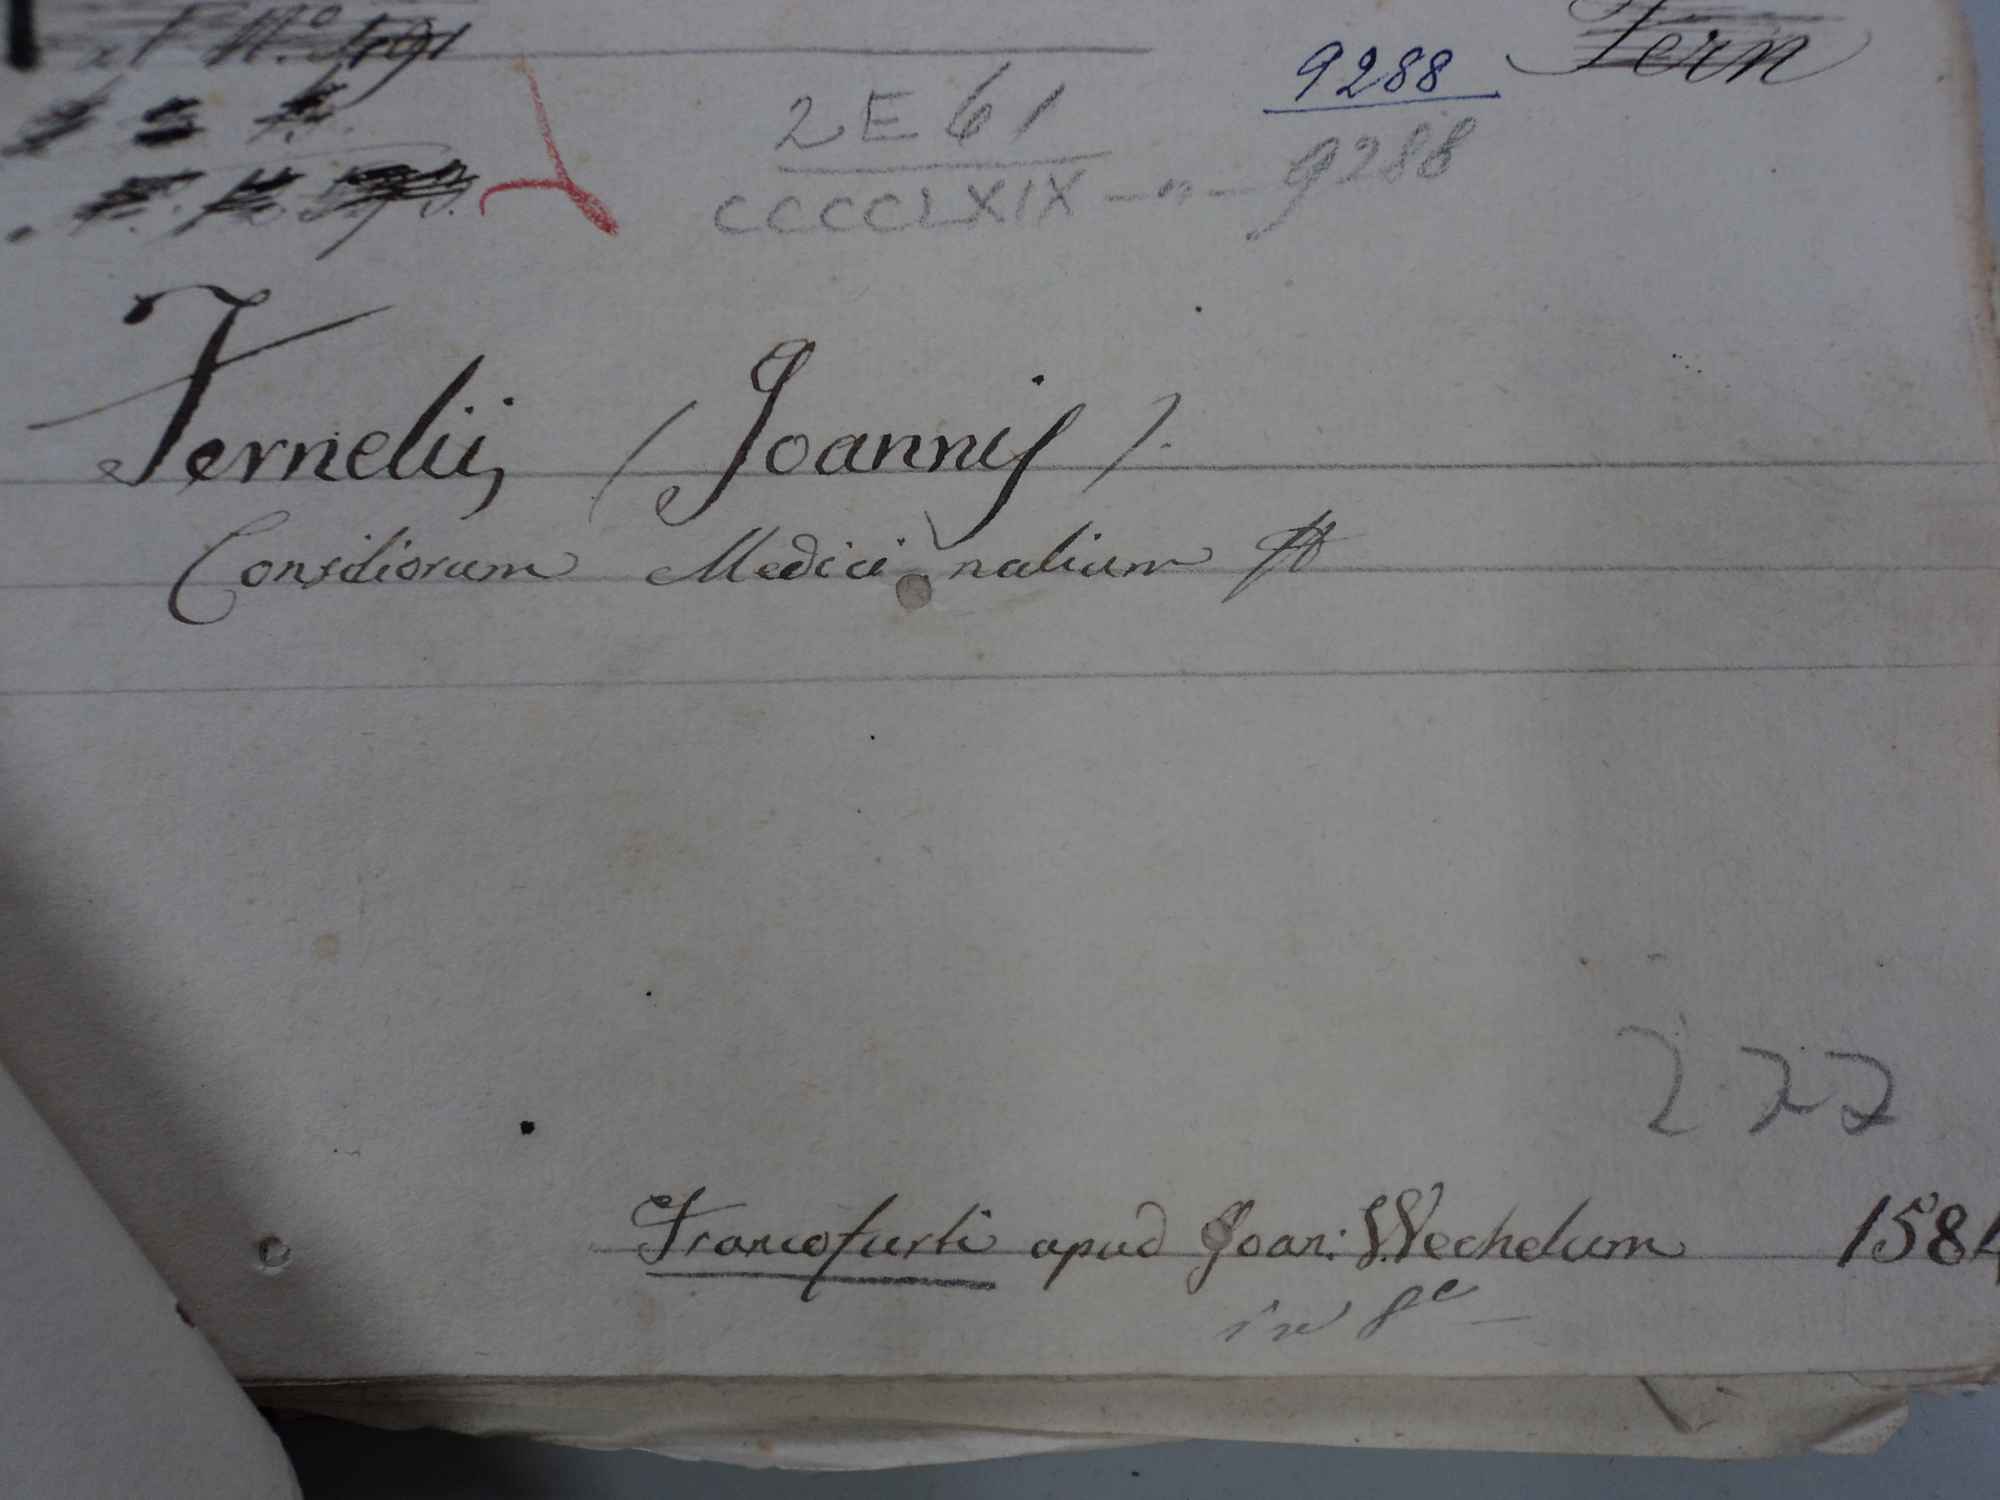 9288 Fern
2 E 61
CCCCLXIX — " — 9288
Fernelii, (Joannis).
Consiliorum Medicinalium
222
Francofurti apud Joan: Wechelum 1584
in 8º